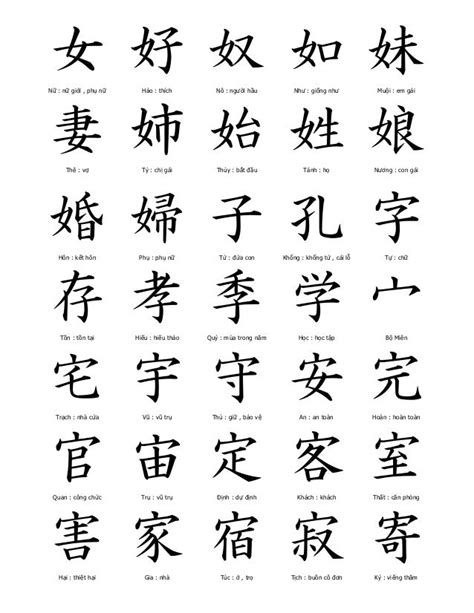 女 好 奴 如 妹
Nữ : nữ giới , phụ nữ Hảo : thích Nô : người hầu Như : giống như Muội : em gái
妻 姉 始 姓 娘
Thê : vợ Tỷ : chị gái Thủy : bắt đầu Tánh : họ Nương : con gái
婚 婦 子 孔 字
Hôn : kết hôn Phụ : phụ nữ Tử : đứa con Khổng : khổng tử , cái lỗ Tự : chữ
存 孝 季 学 宀
Tồn : tồn tại Hiếu : hiếu thảo Quý : mùa trong năm Học : học tập Bộ Miên
宅 宇 守 安 完
Trạch : nhà cửa Vũ : vũ trụ Thủ : giữ , bảo vệ An : an toàn Hoàn : hoàn toàn
官 宙 定 客 室
Quan : công chức Trụ : vũ trụ Định : dự định Khách : khách Thất : căn phòng
害 家 宿 寂 寄
Hại : thiệt hại Gia : nhà Túc : ở , trọ Tịch : buồn cô đơn Ký : viếng thăm